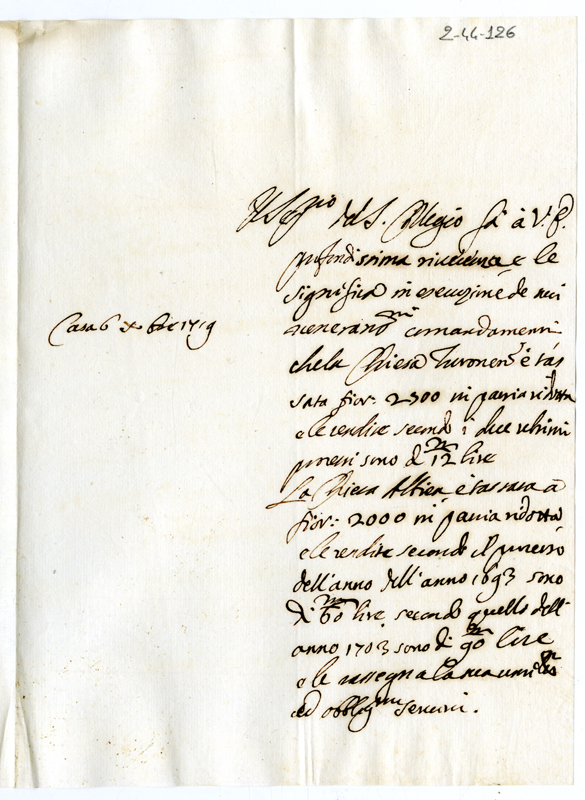 2-44-126
Il Seg.rio del S. Collegio fà à V. E.
profondissima riverenza e le
significa in esecuzione de suoi
veneran.mi comandamenti
Casa 6 Xbre 1719
che la Chiesa Turonen. è tas
sata fior: 2500 in pavia ridotta
e le rendite secondo i due ultimi
processi sono di 12 m lire
La Chiesa Albien. è tassata à
fior: 2000 in pavia ridotta
e le rendite secondo il processo
dell'anno dell'anno 1693 sono
di 60 m lire, secondo quello dell'
anno 1703 sono di 90 m lire
e le rassegna la sua
ed obblig.ma servitù.